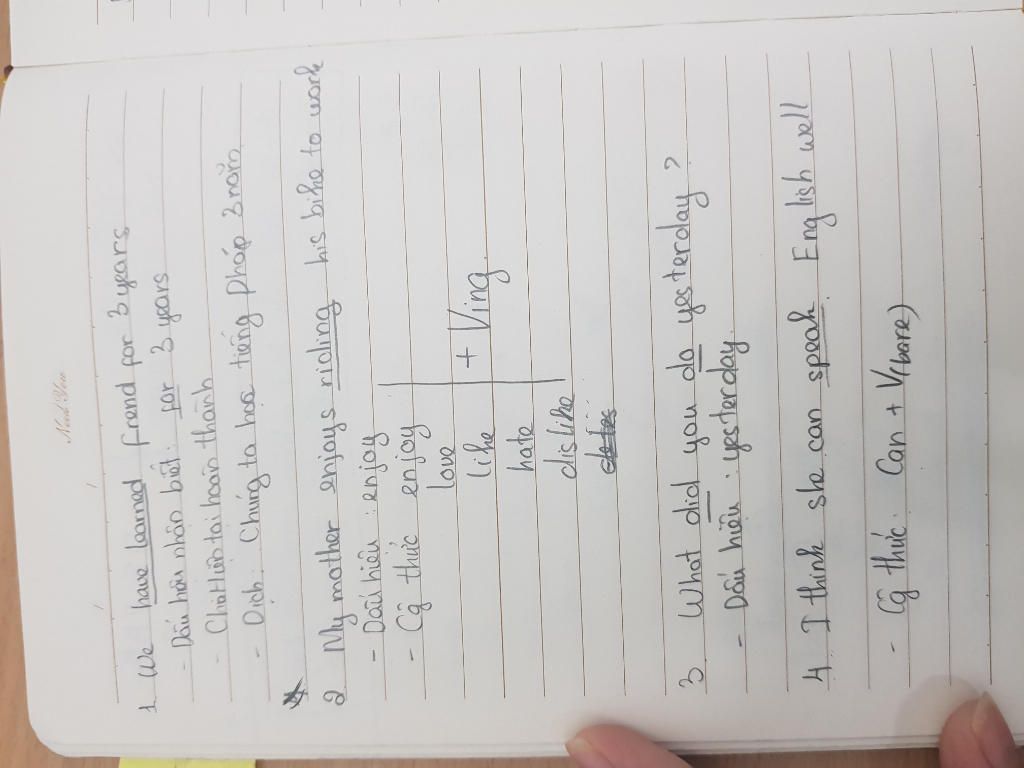 1. We have learned frend for 3 years
- Dấu hiệu nhận biết : for 3 years
- Chia Hiện tại hoàn thành
- Dịch : Chúng ta học tiếng pháp 3 năm
2 My mother enjoys riding his bike to work
- Dấu hiệu : enjoy
- Cg thức enjoy
love
like + Ving
hate
dislike
3 What did you do yesterday ?
- Dấu hiệu : yesterday
4 I think she can speak English well
- Cg thức : Can + V(bare)